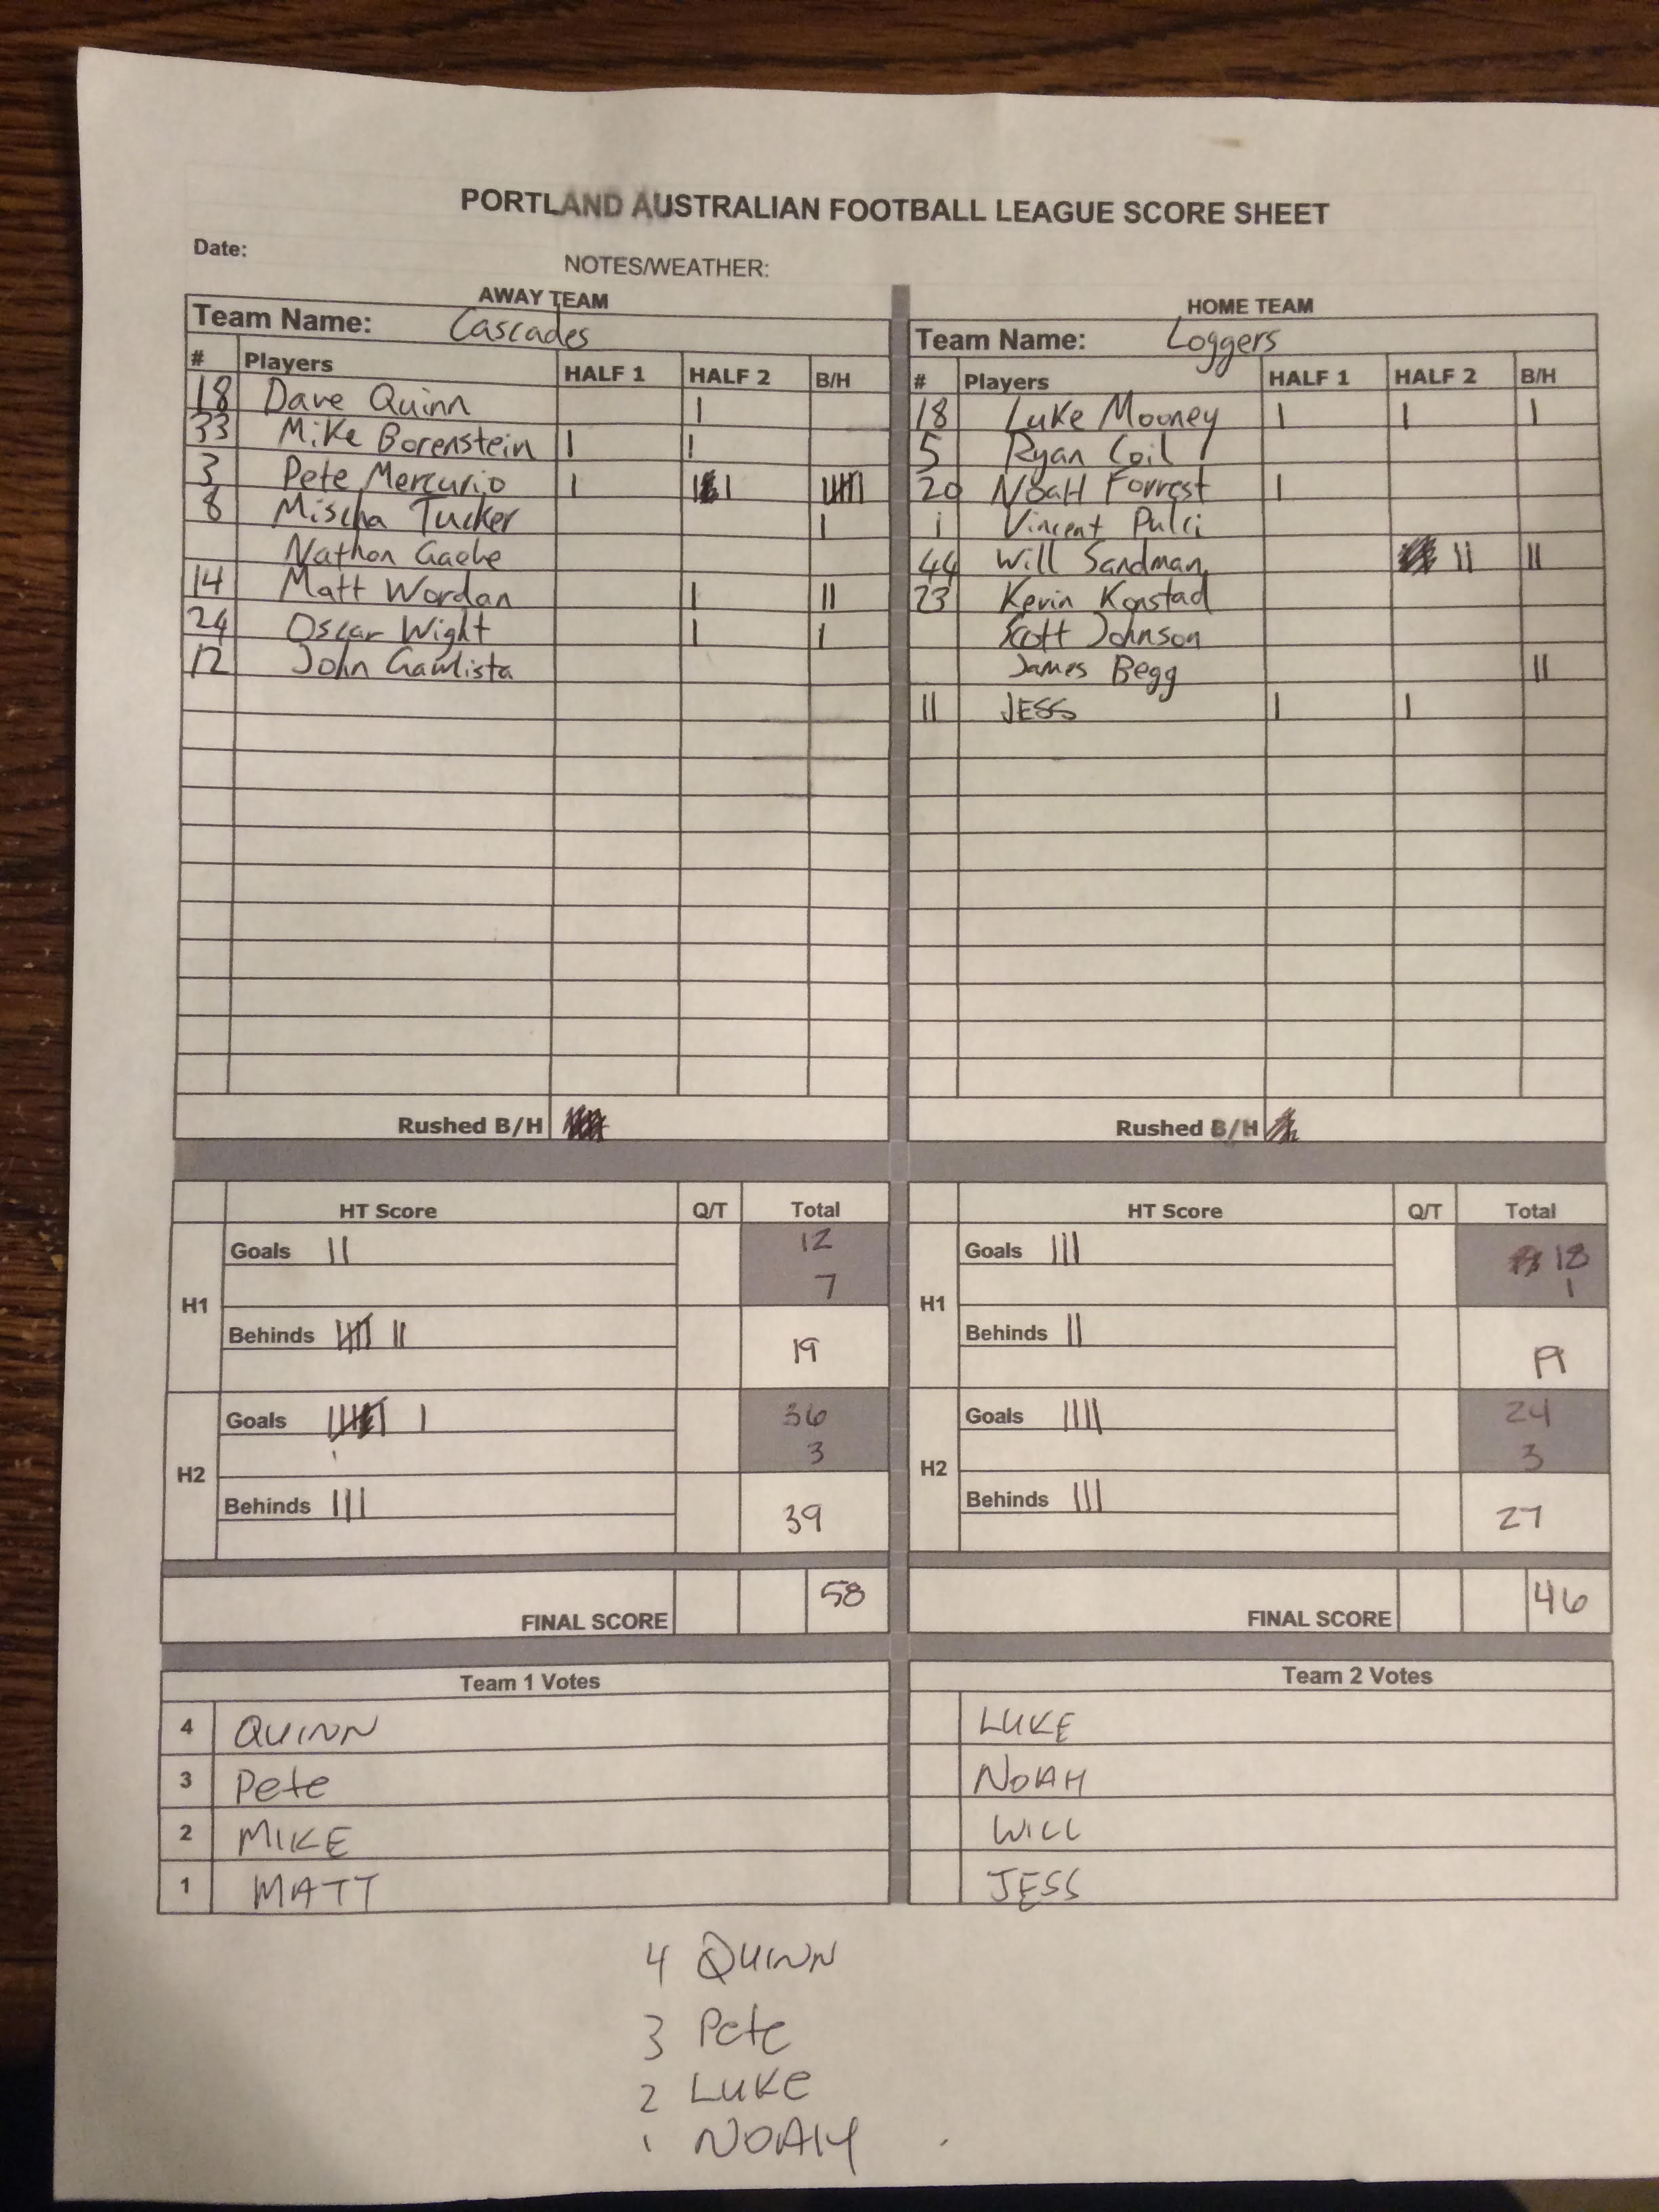 PORTLAND AUSTRALIAN FOOTBALL LEAGUE SCORE SHEET
Date:
NOTES/WEATHER:
AWAY TEAM
Team Name: Cascades
# Players HALF 1 HALF 2 B/H
18 Dave Quinn |
33 Mike Borenstein | |
3 Pete Mercurio | | | ||||
8 Mischa Tucker |
Nathan Gaebe
14 Matt Wordan | ||
24 Oscar Wight | |
12 John
Rushed B/H
HOME TEAM
Team Name: Loggers
# Players HALF 1 HALF 2 B/H
18 Luke Mooney | | |
5 Ryan Coil
20 NoaH Forrest |
1 Vincent Pulci
44 Will Sandman || ||
23 Kevin Konstad
Scott Johnson
James Begg ||
11 JESS | |
Rushed B/H
HT Score Q/T Total
H1
Goals || 12
7
Behinds |||| || 19
H2
Goals |||| | 36
3
Behinds ||| 39
FINAL SCORE 58
HT Score Q/T Total
H1
Goals ||| 18
1
Behinds || 19
H2
Goals |||| 24
3
Behinds ||| 27
FINAL SCORE 46
Team 1 Votes
4 QUINN
3 Pete
2 MIKE
1 MATT
Team 2 Votes
LUKE
NOAH
WILL
JESS
4 QUINN
3 Pete
2 LUKE
1 NOAH